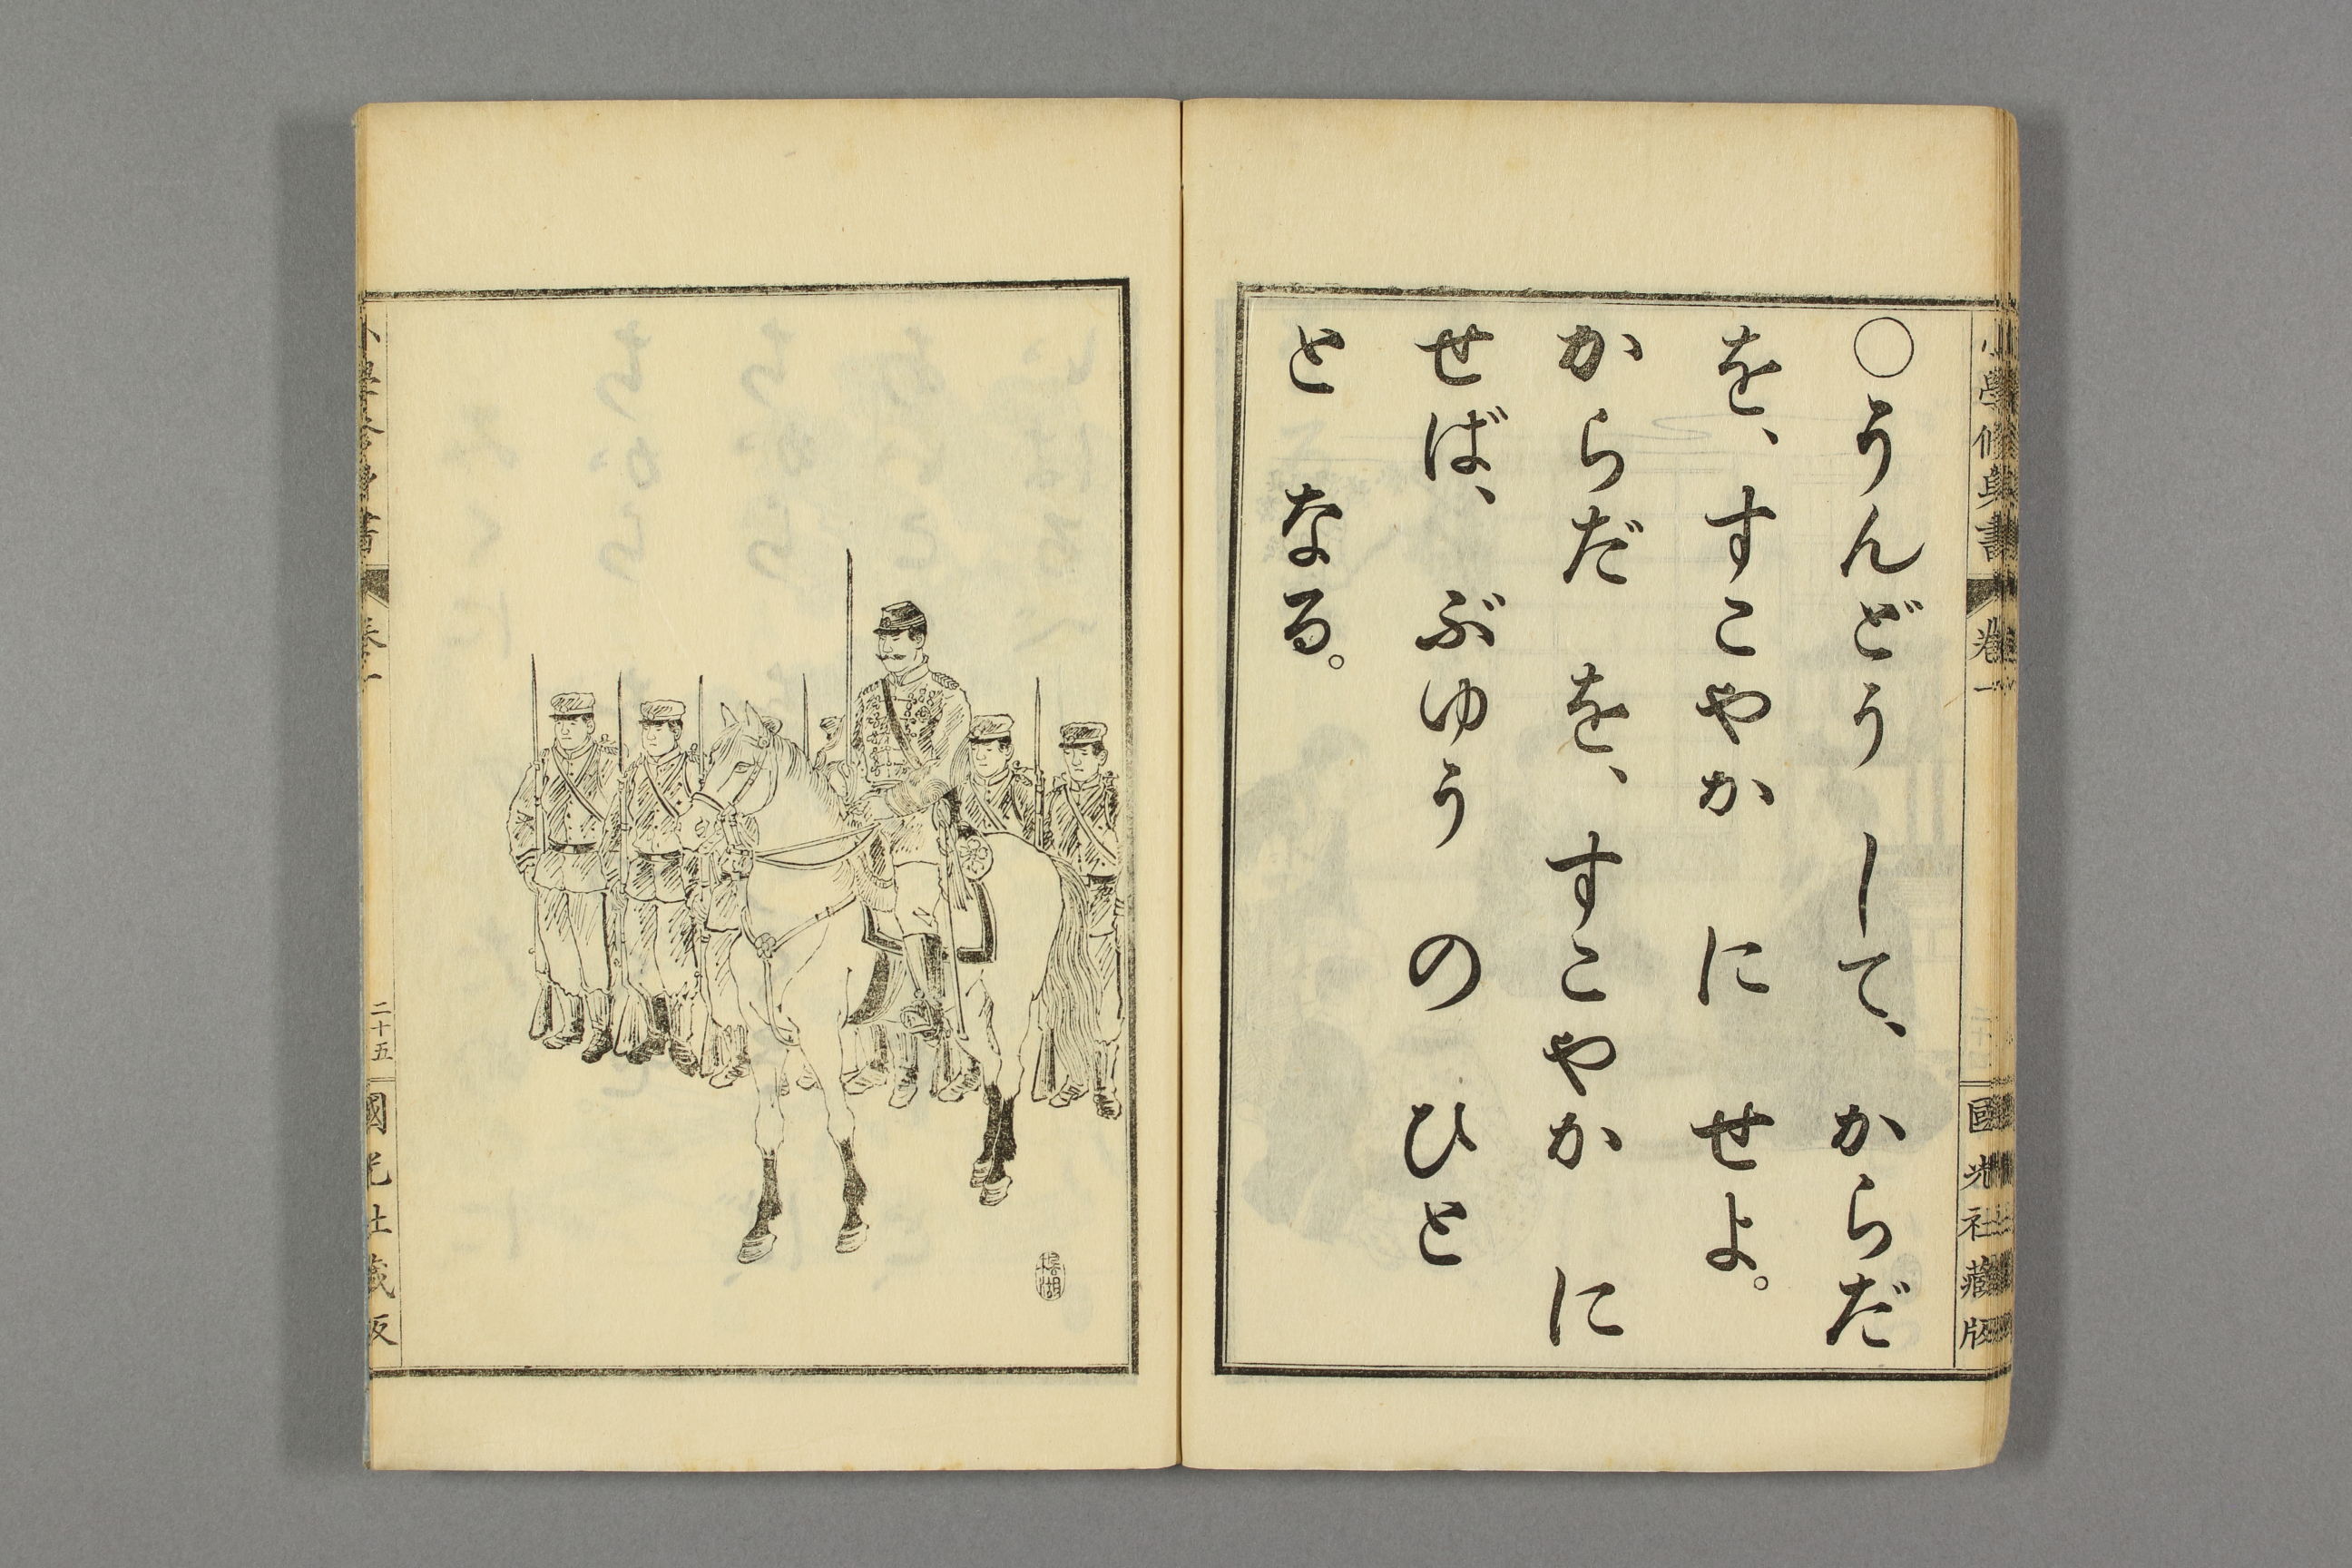 小學修身書 卷一
國光社藏版
○うんどう して、からだ
を、すこやか に せよ。
からだ を、すこやか に
せば、ぶゆう の ひと
と なる。
二十五
國光社藏版